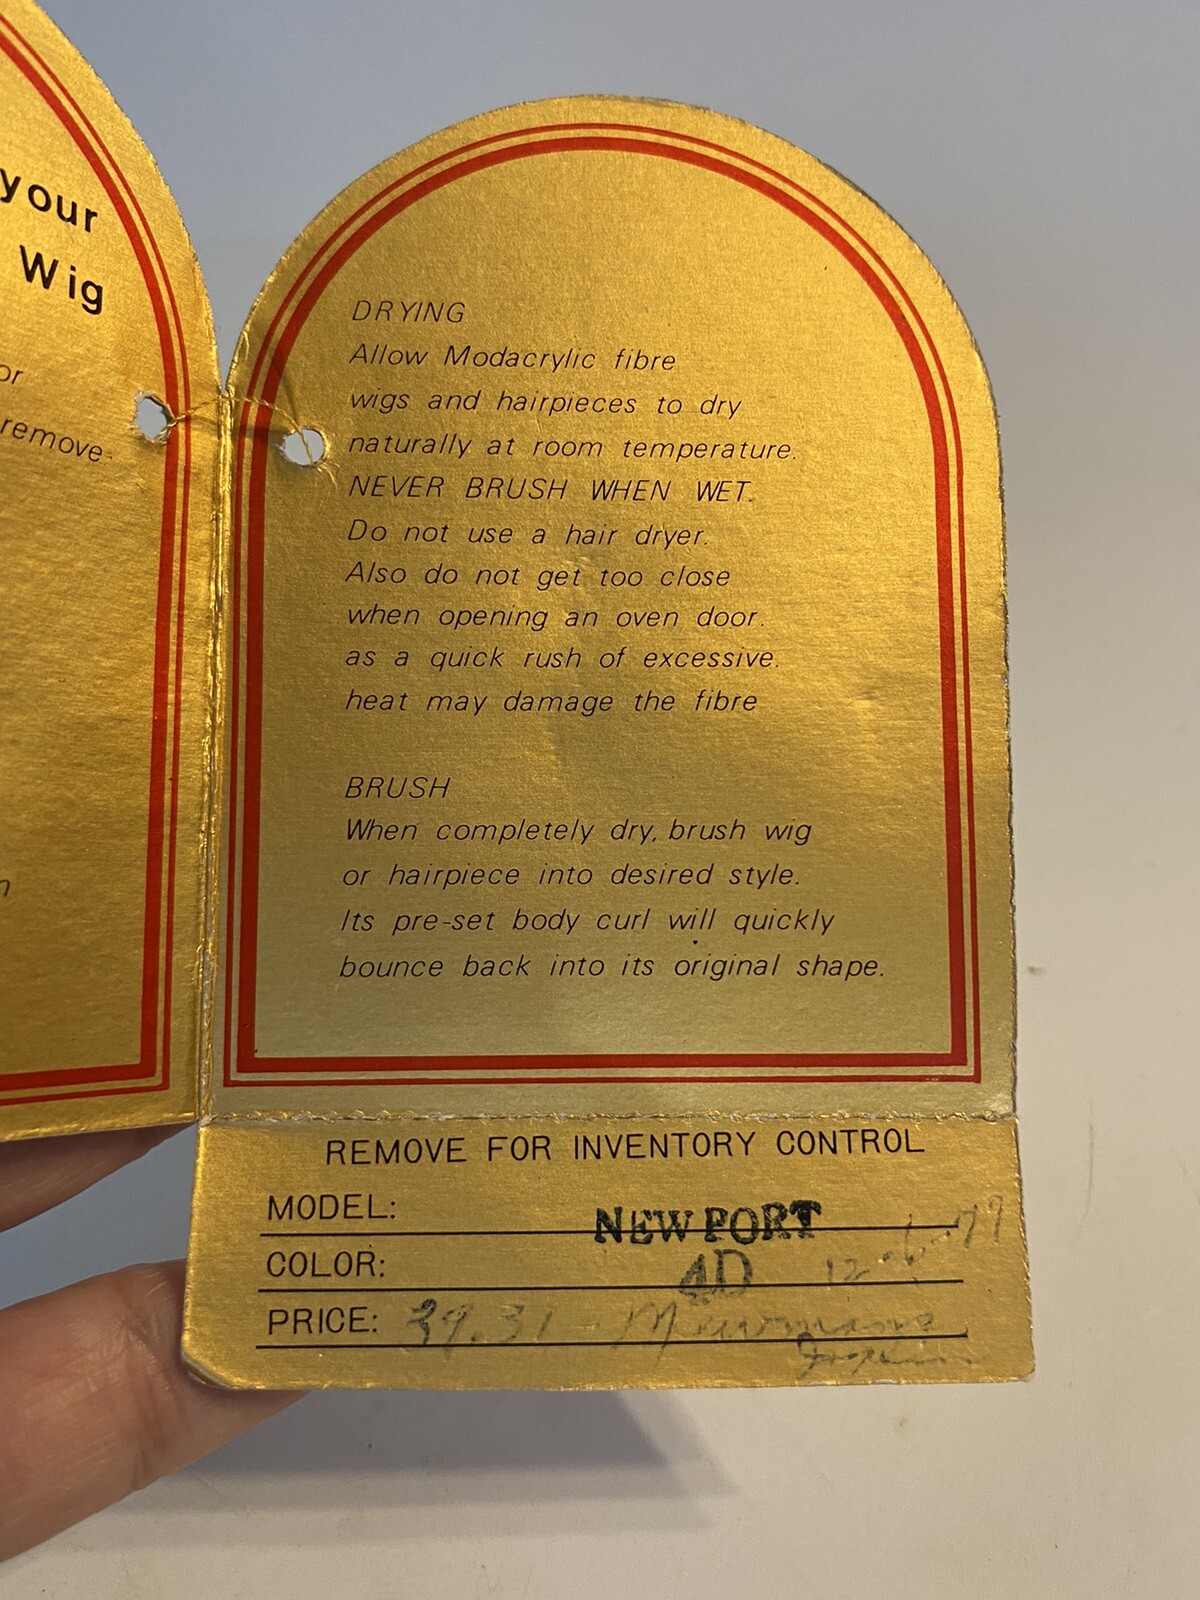 your
Wig
or
remove-
n
DRYING
Allow Modacrylic fibre
wigs and hairpieces to dry
naturally at room temperature.
NEVER BRUSH WHEN WET.
Do not use a hair dryer.
Also do not get too close
when opening an oven door.
as a quick rush of excessive.
heat may damage the fibre
BRUSH
When completely dry, brush wig
or hairpiece into desired style.
Its pre-set body curl will quickly
bounce back into its original shape.
REMOVE FOR INVENTORY CONTROL
MODEL: NEWPORT
COLOR: 4D 12-6-79
PRICE: 39.31 -